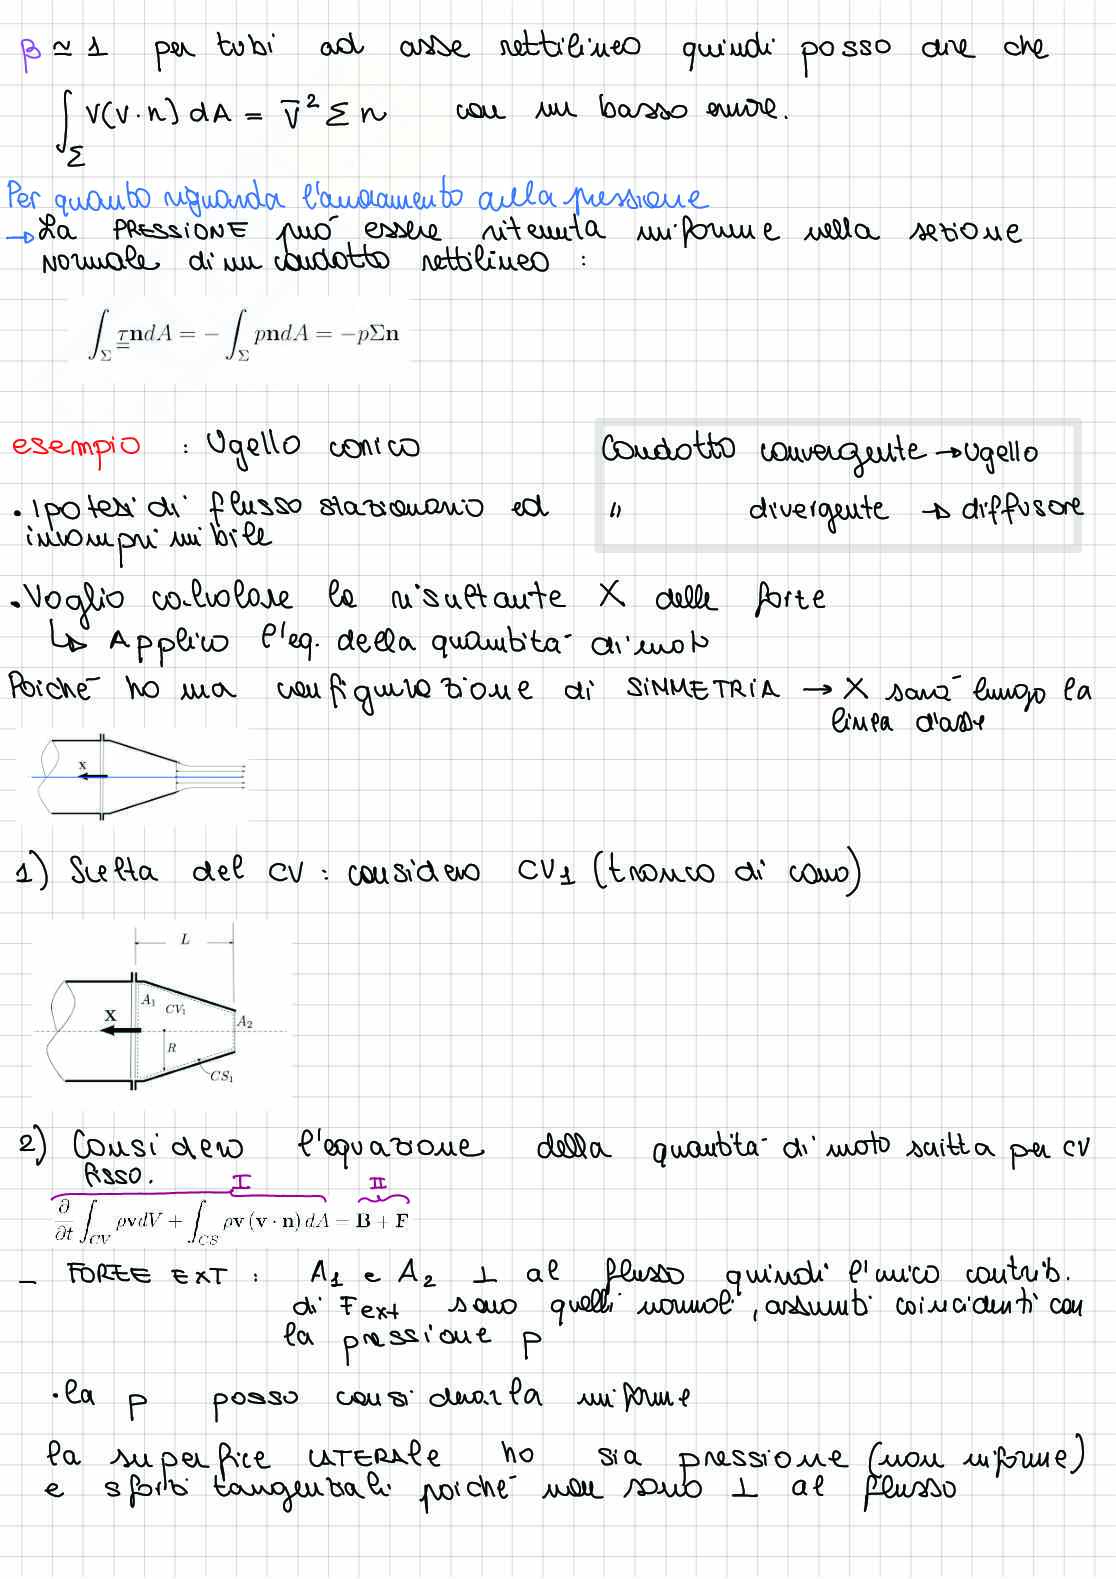 β ≃ 1 per tubi ad asse rettilineo quindi posso dire che
∫_Σ v(v·n) dA = v̄² Σ n con un basso errore.
Per quanto riguarda l'andamento della pressione
→ La PRESSIONE può essere ritenuta uniforme nella sezione
normale di un condotto rettilineo :
∫_Σ τndA = − ∫_Σ pndA = −pΣn
esempio : Ugello conico
Condotto convergente → Ugello
" divergente → diffusore
• Ipotesi di flusso stazionario ed
incomprimibile
• Voglio calcolare la risultante X delle forze
↳ Applico l'eq. della quantità di moto
Poiché ho una configurazione di SIMMETRIA → X sarà lungo la
linea d'asse
X
1) Scelta del CV : considero CV1 (tronco di cono)
L
A₁ CV₁
X A₂
R
CS₁
2) Considero l'equazione della quantità di moto scritta per CV
fisso.
I II
∂/∂t ∫_CV ρvdV + ∫_CS ρv (v · n) dA = B + F
– FORZE EXT : A1 e A2 ⊥ al flusso quindi l'unico contrib.
di Fext sono quelli normali, assunti coincidenti con
la pressione p
• la p posso considerarla uniforme
la superfice LATERALE ho sia pressione (non uniforme)
e sforzi tangenziali poiché non sono ⊥ al flusso